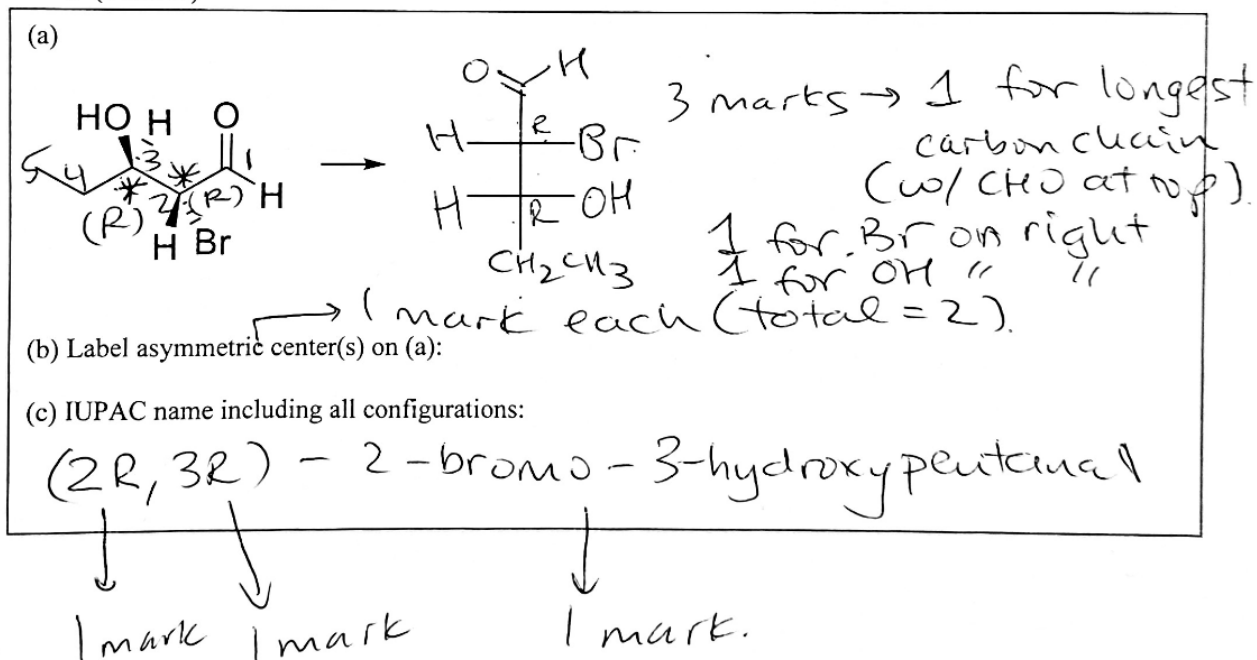 (a)
HO H O
5 4 3 * * 1
(R) 2 (R) H
H Br
O H
H R Br
H R OH
CH2CH3
3 marks → 1 for longest
carbon chain
(w/ CHO at top).
1 for Br on right
1 for OH " "
→ 1 mark each (total = 2).
(b) Label asymmetric center(s) on (a):
(c) IUPAC name including all configurations:
(2R, 3R) - 2-bromo-3-hydroxypentanal
1 mark 1 mark 1 mark.